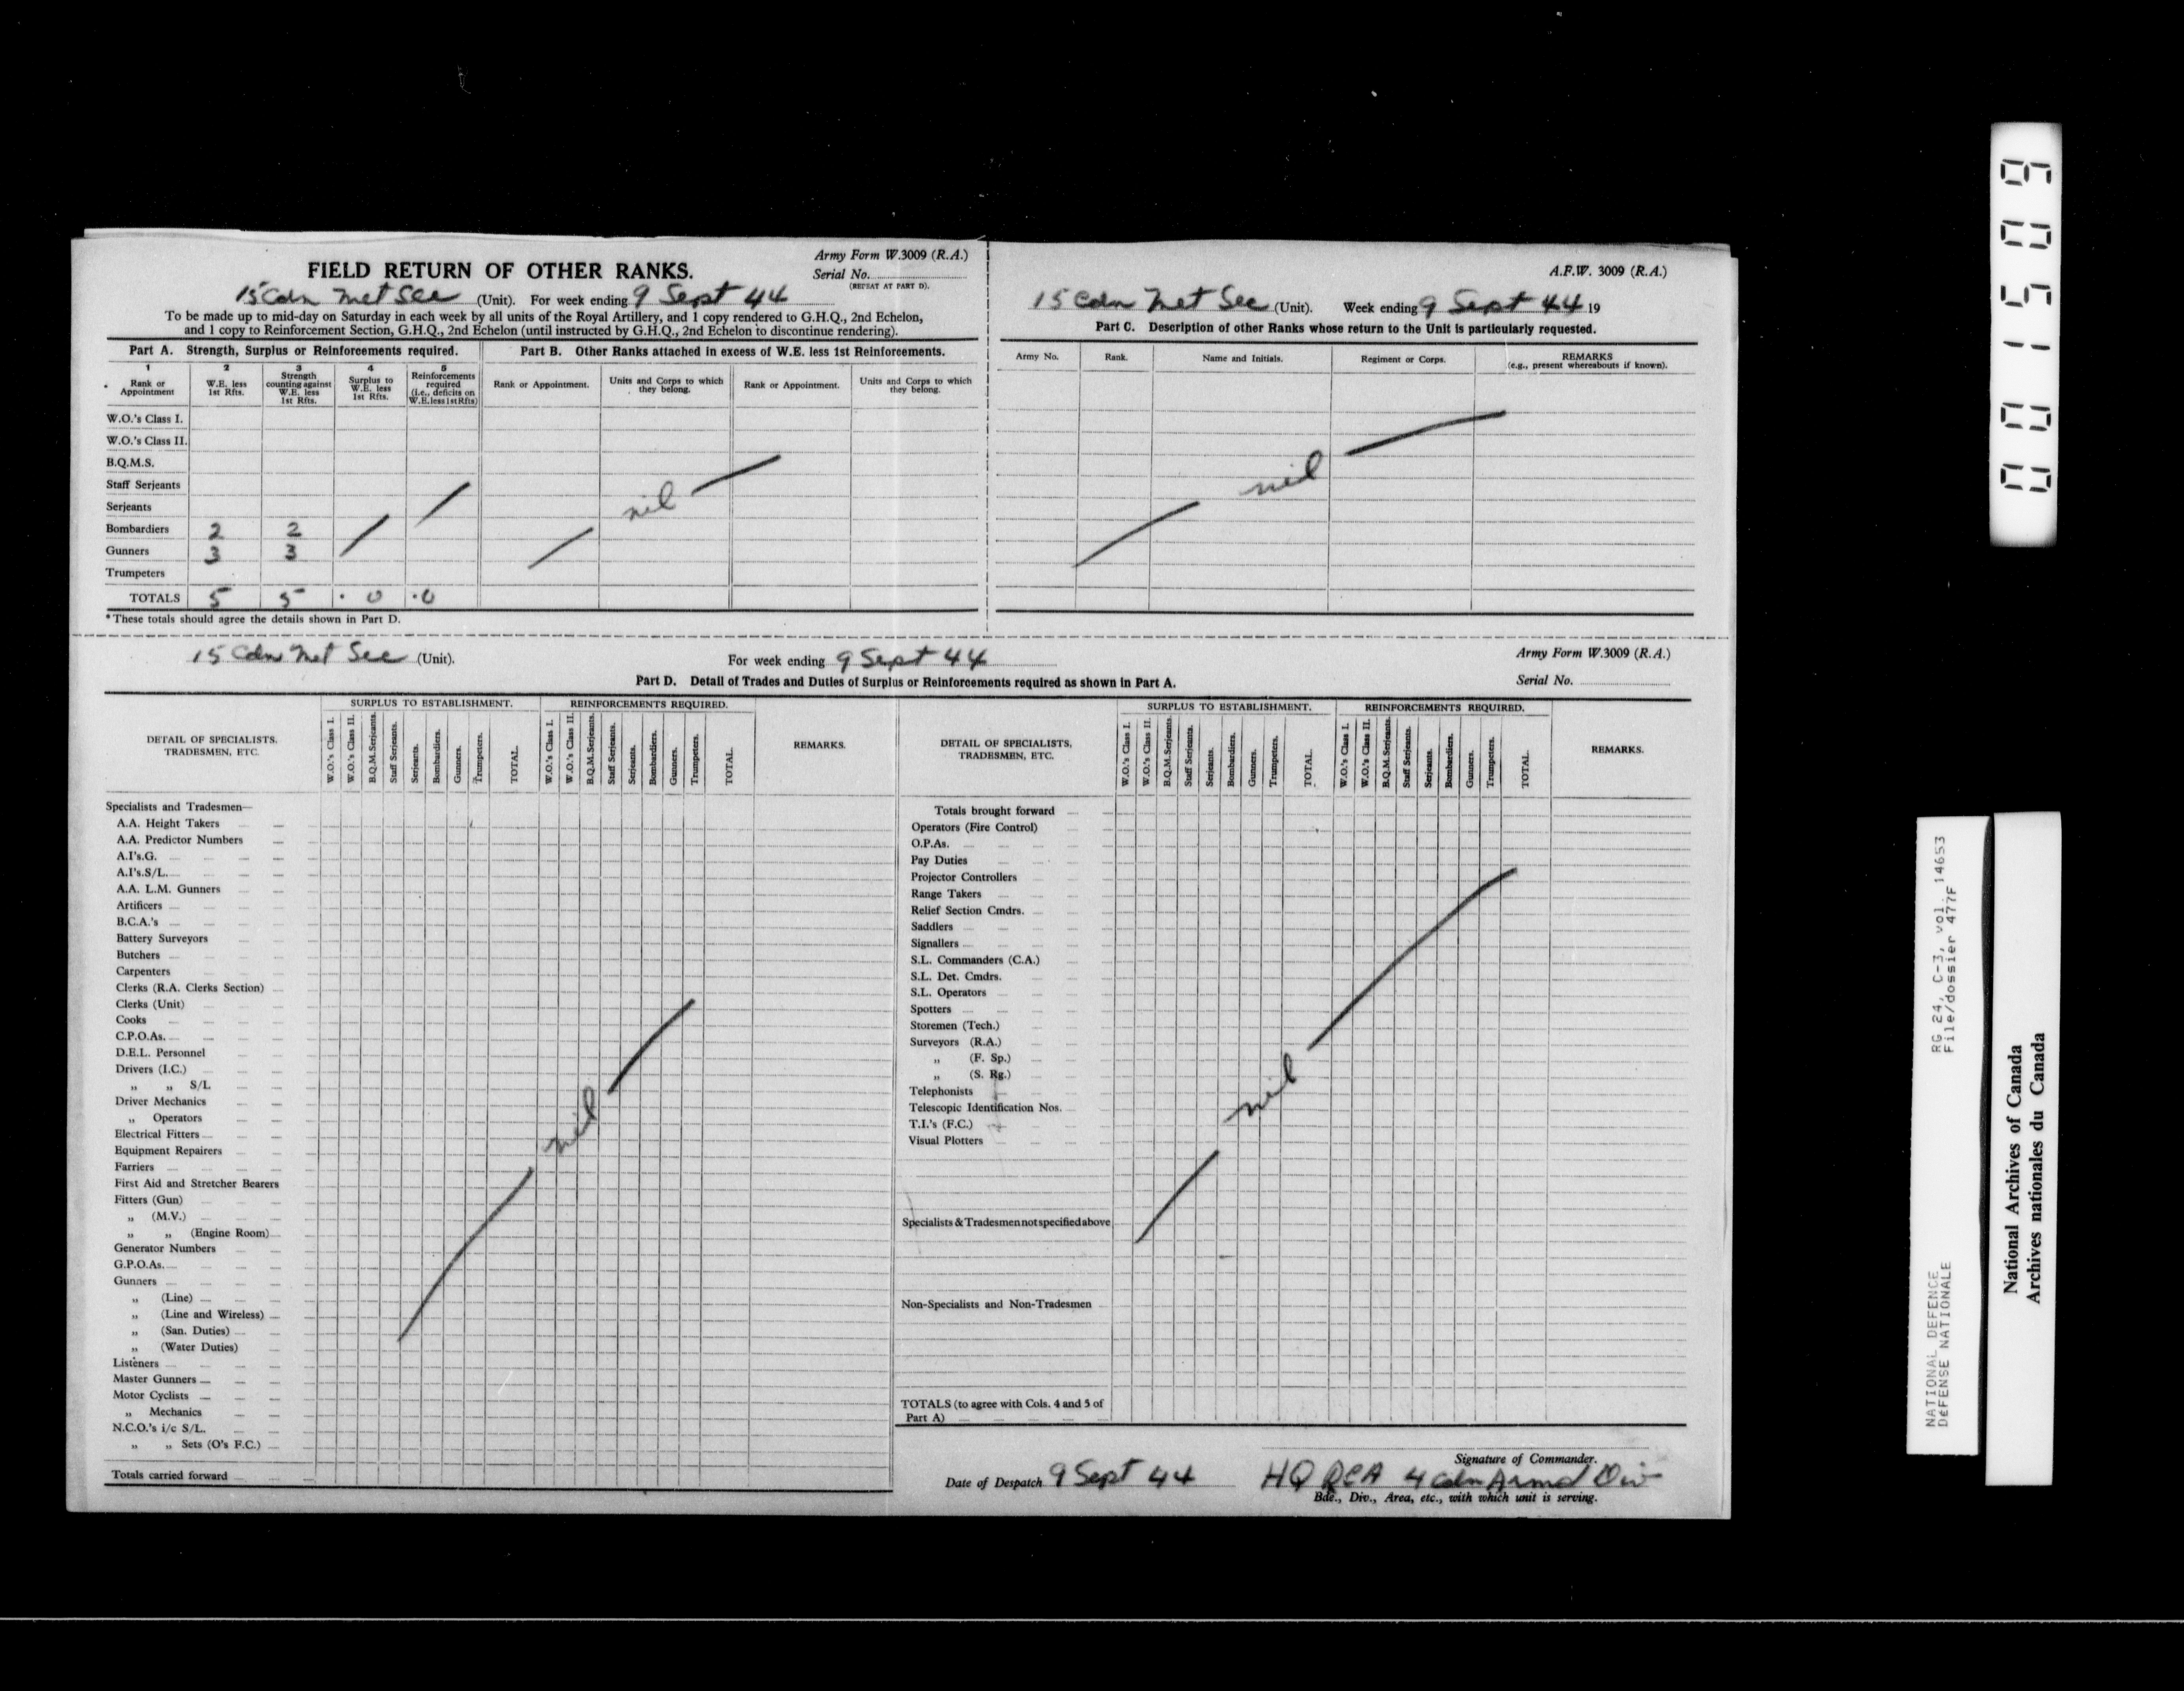 FIELD RETURN OF OTHER RANKS.
Army Form W.3009 (R.A.)
Serial No.
(REPEAT AT PART D).
15 Cdn Met Sec (Unit). For week ending 9 Sept 44
To be made up to mid-day on Saturday in each week by all units of the Royal Artillery, and 1 copy rendered to G.H.Q., 2nd Echelon,
and 1 copy to Reinforcement Section, G.H.Q., 2nd Echelon (until instructed by G.H.Q., 2nd Echelon to discontinue rendering).
Part A. Strength, Surplus or Reinforcements required.
1 2 3 4 5
Rank or Appointment
W.E. less 1st Rfts.
Strength counting against W.E. less 1st Rfts.
Surplus to W.E. less 1st Rfts.
Reinforcements required (i.e., deficits on W.E. less 1st Rfts)
W.O.'s Class I.
W.O.'s Class II.
B.Q.M.S.
Staff Serjeants
Serjeants
Bombardiers 2 2
Gunners 3 3
Trumpeters
TOTALS 5 5 · 0 ·0
*These totals should agree the details shown in Part D.
Part B. Other Ranks attached in excess of W.E. less 1st Reinforcements.
Rank or Appointment.
Units and Corps to which they belong.
Rank or Appointment.
Units and Corps to which they belong.
nil
A.F.W. 3009 (R.A.)
15 Cdn Met Sec (Unit). Week ending 9 Sept 44 19
Part C. Description of other Ranks whose return to the Unit is particularly requested.
Army No. Rank. Name and Initials. Regiment or Corps. REMARKS
(e.g., present whereabouts if known).
nil
15 Cdn Met Sec (Unit). For week ending 9 Sept 44
Army Form W.3009 (R.A.)
Serial No.
Part D. Detail of Trades and Duties of Surplus or Reinforcements required as shown in Part A.
DETAIL OF SPECIALISTS, TRADESMEN, ETC.
SURPLUS TO ESTABLISHMENT.
W.O.'s Class I.
W.O.'s Class II.
B.Q.M.Serjeants.
Staff Serjeants.
Serjeants.
Bombardiers.
Gunners.
Trumpeters.
TOTAL.
REINFORCEMENTS REQUIRED.
W.O.'s Class I.
W.O.'s Class II.
B.Q.M.Serjeants.
Staff Serjeants.
Serjeants.
Bombardiers.
Gunners.
Trumpeters.
TOTAL.
REMARKS.
Specialists and Tradesmen—
A.A. Height Takers
A.A. Predictor Numbers
A.I's.G.
A.I's.S/L.
A.A. L.M. Gunners
Artificers
B.C.A.'s
Battery Surveyors
Butchers
Carpenters
Clerks (R.A. Clerks Section)
Clerks (Unit)
Cooks
C.P.O.As.
D.E.L. Personnel
Drivers (I.C.)
„ „ S/L
Driver Mechanics
„ Operators
Electrical Fitters
Equipment Repairers
Farriers
First Aid and Stretcher Bearers
Fitters (Gun)
„ (M.V.)
„ „ (Engine Room)
Generator Numbers
G.P.O.As.
Gunners
„ (Line)
„ (Line and Wireless)
„ (San. Duties)
„ (Water Duties)
Listeners
Master Gunners
Motor Cyclists
„ Mechanics
N.C.O.'s i/c S/L.
„ „ Sets (O's F.C.)
Totals carried forward
nil
DETAIL OF SPECIALISTS, TRADESMEN, ETC.
SURPLUS TO ESTABLISHMENT.
W.O.'s Class I.
W.O.'s Class II.
B.Q.M.Serjeants.
Staff Serjeants.
Serjeants.
Bombardiers.
Gunners.
Trumpeters.
TOTAL.
REINFORCEMENTS REQUIRED.
W.O.'s Class I.
W.O.'s Class II.
B.Q.M.Serjeants.
Staff Serjeants.
Serjeants.
Bombardiers.
Gunners.
Trumpeters.
TOTAL.
REMARKS.
Totals brought forward
Operators (Fire Control)
O.P.As.
Pay Duties
Projector Controllers
Range Takers
Relief Section Cmdrs.
Saddlers
Signallers
S.L. Commanders (C.A.)
S.L. Det. Cmdrs.
S.L. Operators
Spotters
Storemen (Tech.)
Surveyors (R.A.)
„ (F. Sp.)
„ (S. Rg.)
Telephonists
Telescopic Identification Nos.
T.I.'s (F.C.)
Visual Plotters
Specialists & Tradesmen not specified above
Non-Specialists and Non-Tradesmen
TOTALS (to agree with Cols. 4 and 5 of
Part A)
nil
Signature of Commander.
Date of Despatch 9 Sept 44 HQ RCA 4 Cdn Armd Div
Bde., Div., Area, etc., with which unit is serving.
001509
RG 24, C-3, vol. 14653
File/dossier 477F
NATIONAL DEFENCE
DÉFENSE NATIONALE
National Archives of Canada
Archives nationales du Canada